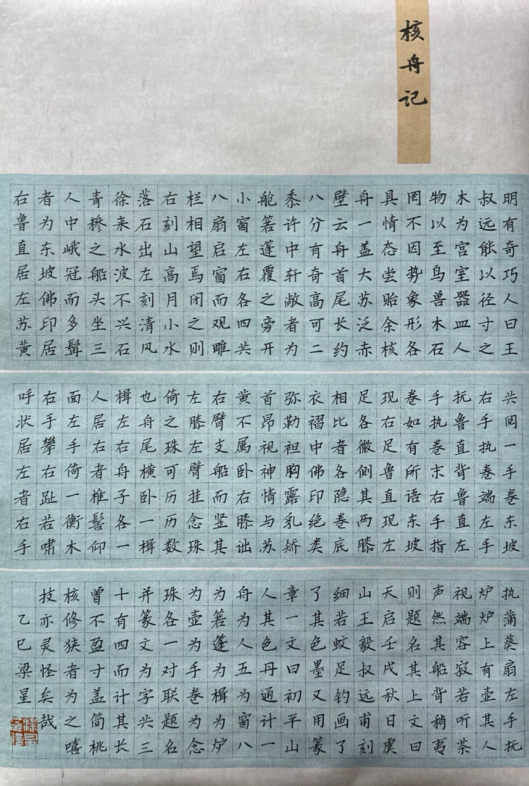 核舟记
明有奇巧人曰王
叔远能以径寸之
木为宫室器皿人
物以至鸟兽木石
罔不因势象形各
具情态尝贻余核
舟一盖大苏泛赤
壁云舟首尾长约
八分有奇高可二
黍许中轩敞者为
舱箬篷覆之旁开
小窗左右各四共
八扇启窗而观雕
栏相望焉闭之则
右刻山高月小水
落石出左刻清风
徐来水波不兴石
青糁之船头坐三
人中峨冠而多髯
者为东坡佛印居
右鲁直居左苏黄
共阅一手卷东坡
右手执卷端左手
抚鲁直背鲁直左
手执卷末右手指
卷如有所语东坡
现右足鲁直现左
足各微侧其两膝
相比者各隐卷底
衣褶中佛印绝类
弥勒袒胸露乳矫
首昂视神情与苏
黄不属卧右膝诎
右臂支船而竖其
左膝左臂挂念珠
倚之珠可历历数
也舟尾横卧一楫
楫左右舟子各一
人居右者椎髻仰
面左手倚一衡木
右手攀右趾若啸
呼状居左者右手
执蒲葵扇左手抚
炉炉上有壶其人
视端容寂若听茶
声然其船背稍夷
则题名其上文曰
天启壬戌秋日虞
山王毅叔远甫刻
细若蚊足钩画了
了其色墨又用篆
章一文曰初平山
人其色丹通计一
舟为人五为窗八
为箬篷为楫为炉
为壶为手卷为念
珠各一对联题名
并篆文为字共三
十有四而计其长
曾不盈寸盖简桃
核修狭者为之嘻
技亦灵怪矣哉
乙巳梁星